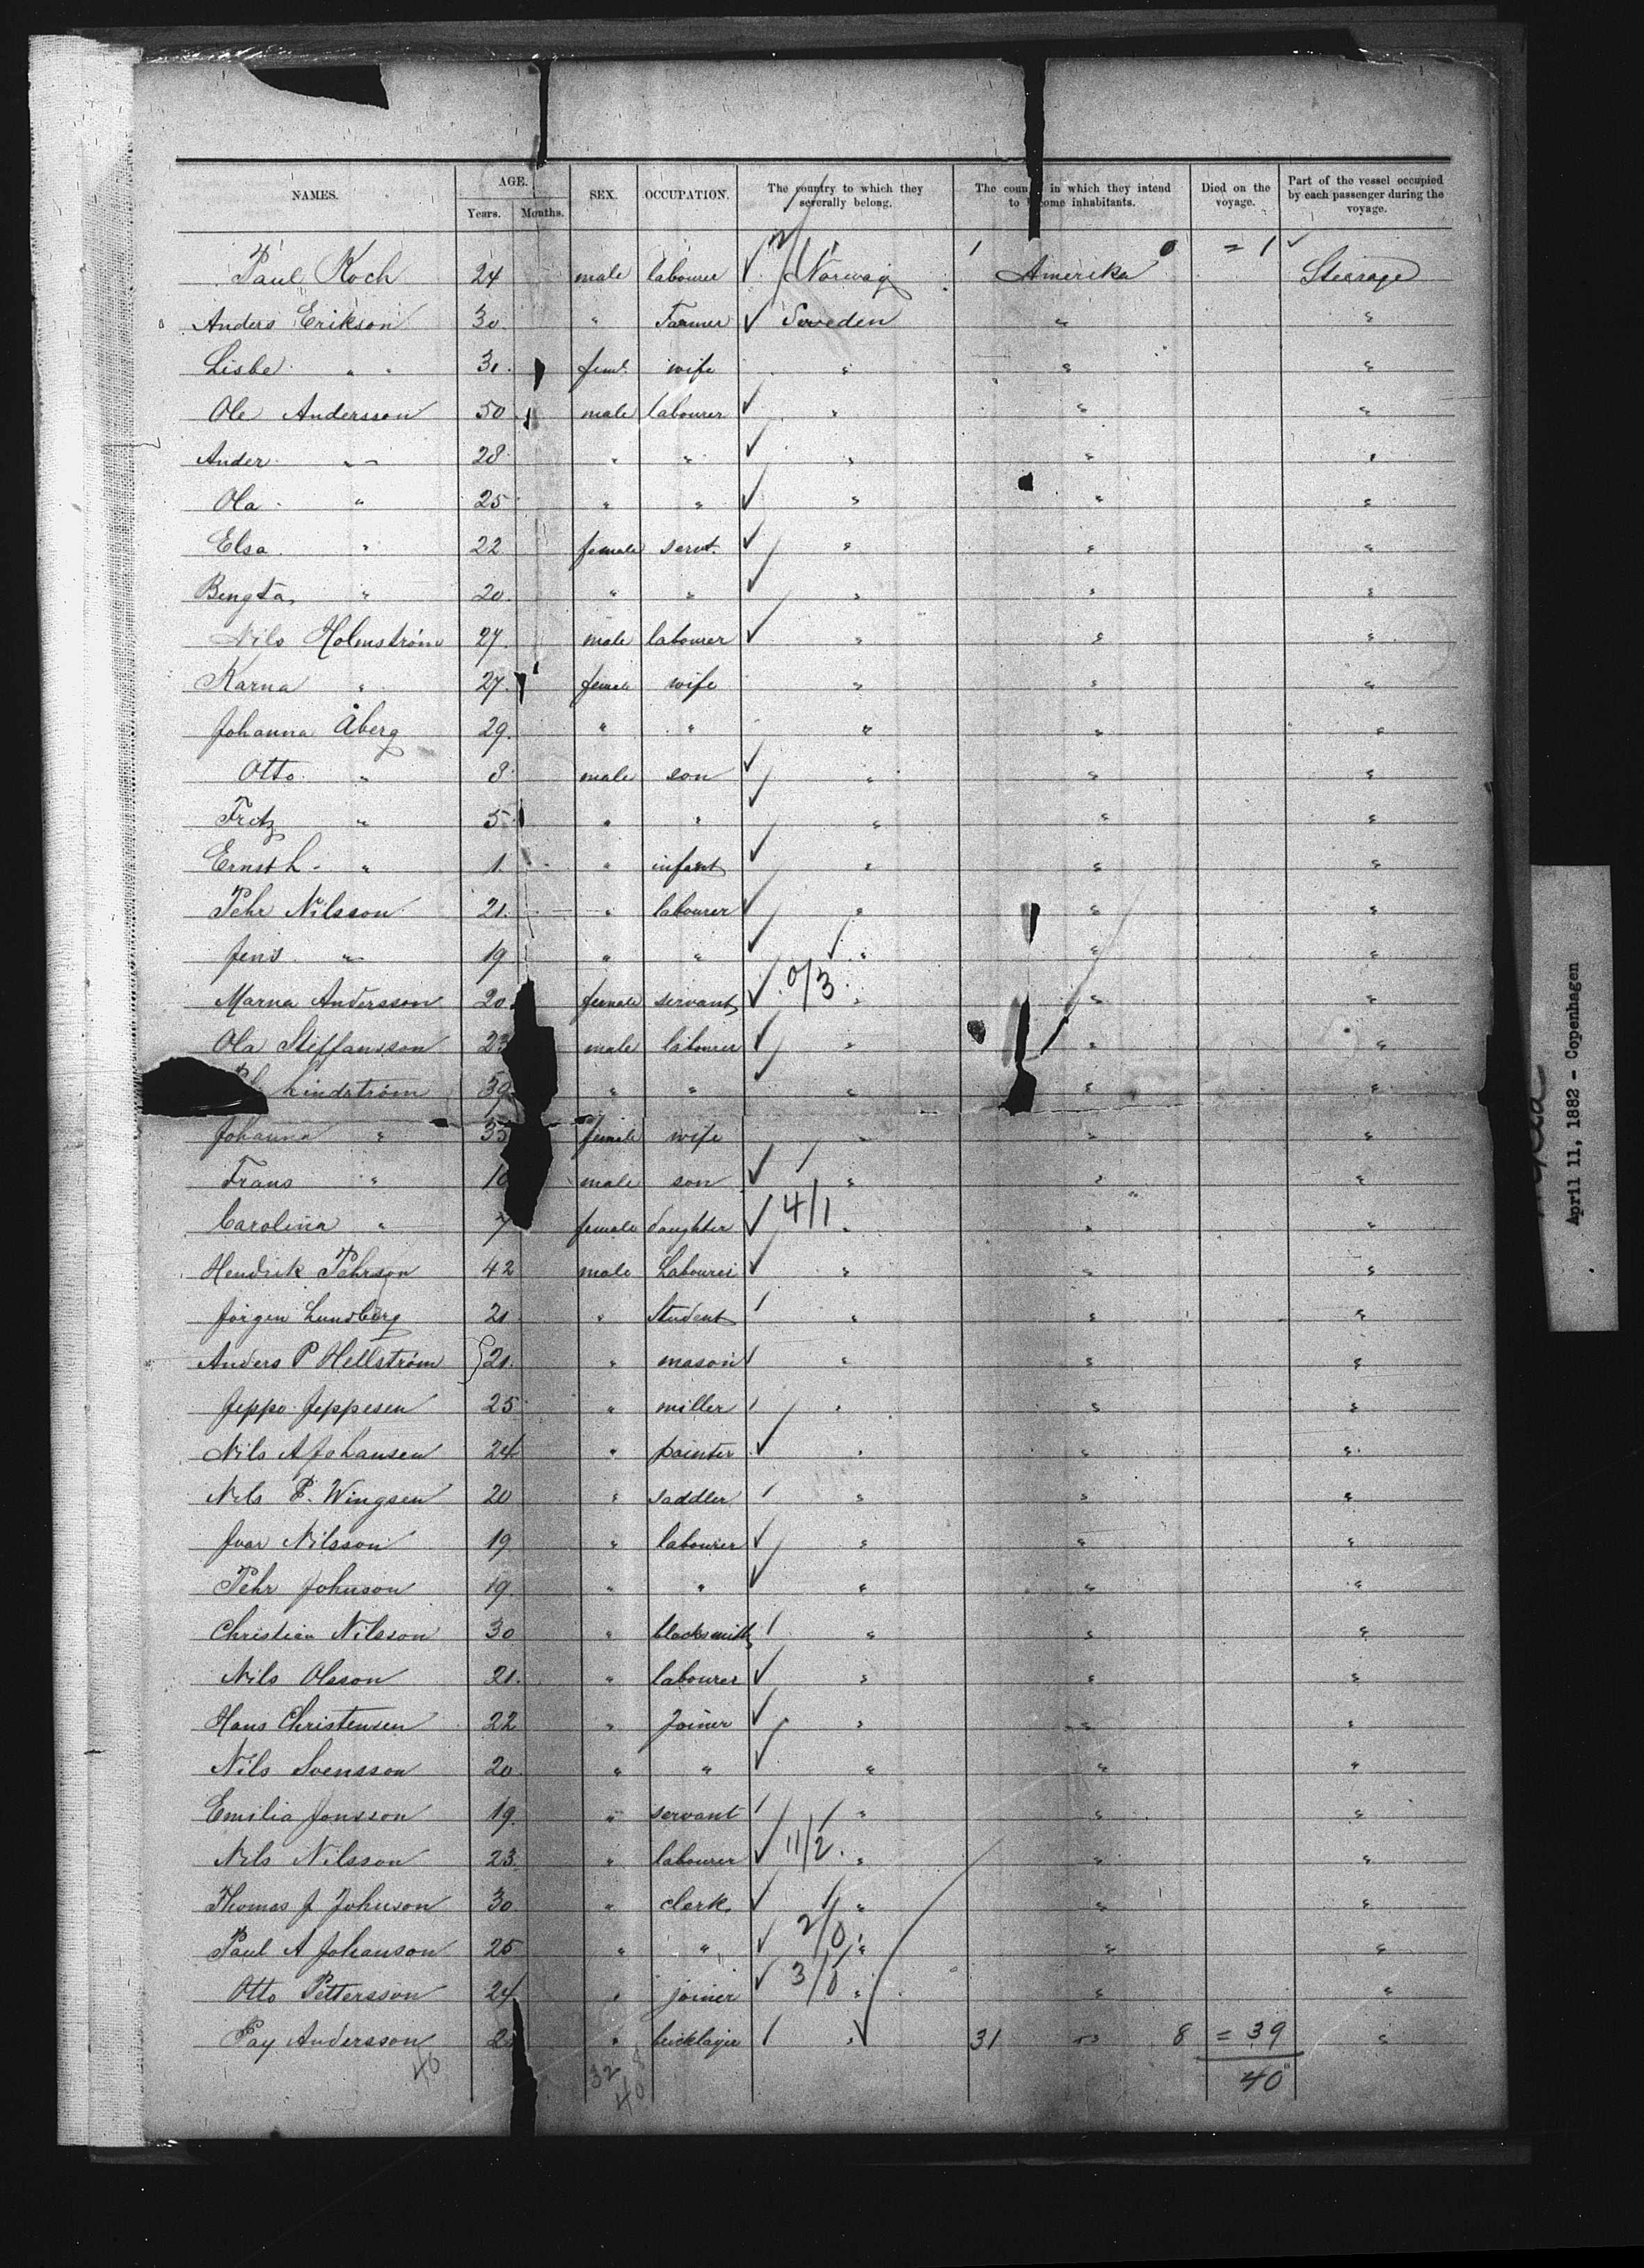 NAMES. AGE. Years. Months. SEX. OCCUPATION. The country to which they severally belong. The coun in which they intend to ome inhabitants. Died on the voyage. Part of the vessel occupied by each passenger during the voyage.
1 0 = 1
Paul Koch 24 male labourer Norway Amerika Steerage
Anders Erikson 30 " Farmer Sweden " "
Lisbe " " 31 feml. wife " " "
Ole Andersson 50 male labourer " " "
Ander " 28 " " " " "
Ola " 25 " " " " "
Elsa " 22 female servt. " " "
Bengta " 20 " " " " "
Nils Holmström 27 male labourer " " "
Karna " 27 female wife " " "
Johanna Åberg 29 " " " " "
Otto " 8 male son " " "
Fritz " 5 " " " " "
Ernst L " 1 " infant " " "
Pehr Nilsson 21 " labourer " " "
Jens " 19 " " " " "
Marna Andersson 20 female servant 0/3 " " "
Ola Steffansson 23 male labourer " " "
Lindström 39 " " " " "
Johanna " 35 female wife " " "
Frans " 10 male son " " "
Carolina " 7 female daughter 4/1 " " "
Hendrik Pehrson 42 male Labourer " " "
Jörgen Lundberg 21 " Student " " "
Anders P Hellström 21 " mason " " "
Jeppo Jeppesen 25 " miller " " "
Nils A Johansen 24 " painter " " "
Nils P. Wingsen 20 " saddler " " "
Ivar Nilsson 19 " labourer " " "
Pehr Johnson 19 " " " " "
Christian Nilsson 30 " blacksmith " " "
Nils Olsson 21 " labourer " " "
Hans Christensen 22 " Joiner " " "
Nils Svensson 20 " " " " "
Emilia Jonsson 19 " servant " " "
Nils Nilsson 23 " labourer 11/2 " " "
Thomas J Johnson 30 " clerk " " "
Paul A Johanson 25 " " 2/0 " " "
Otto Pettersson 24 " joiner 3/0 " " "
Pay Andersson 2 " bricklayer " 31 " 8 = 39 "
40 32 8 40 40
April 11, 1882 - Copenhagen